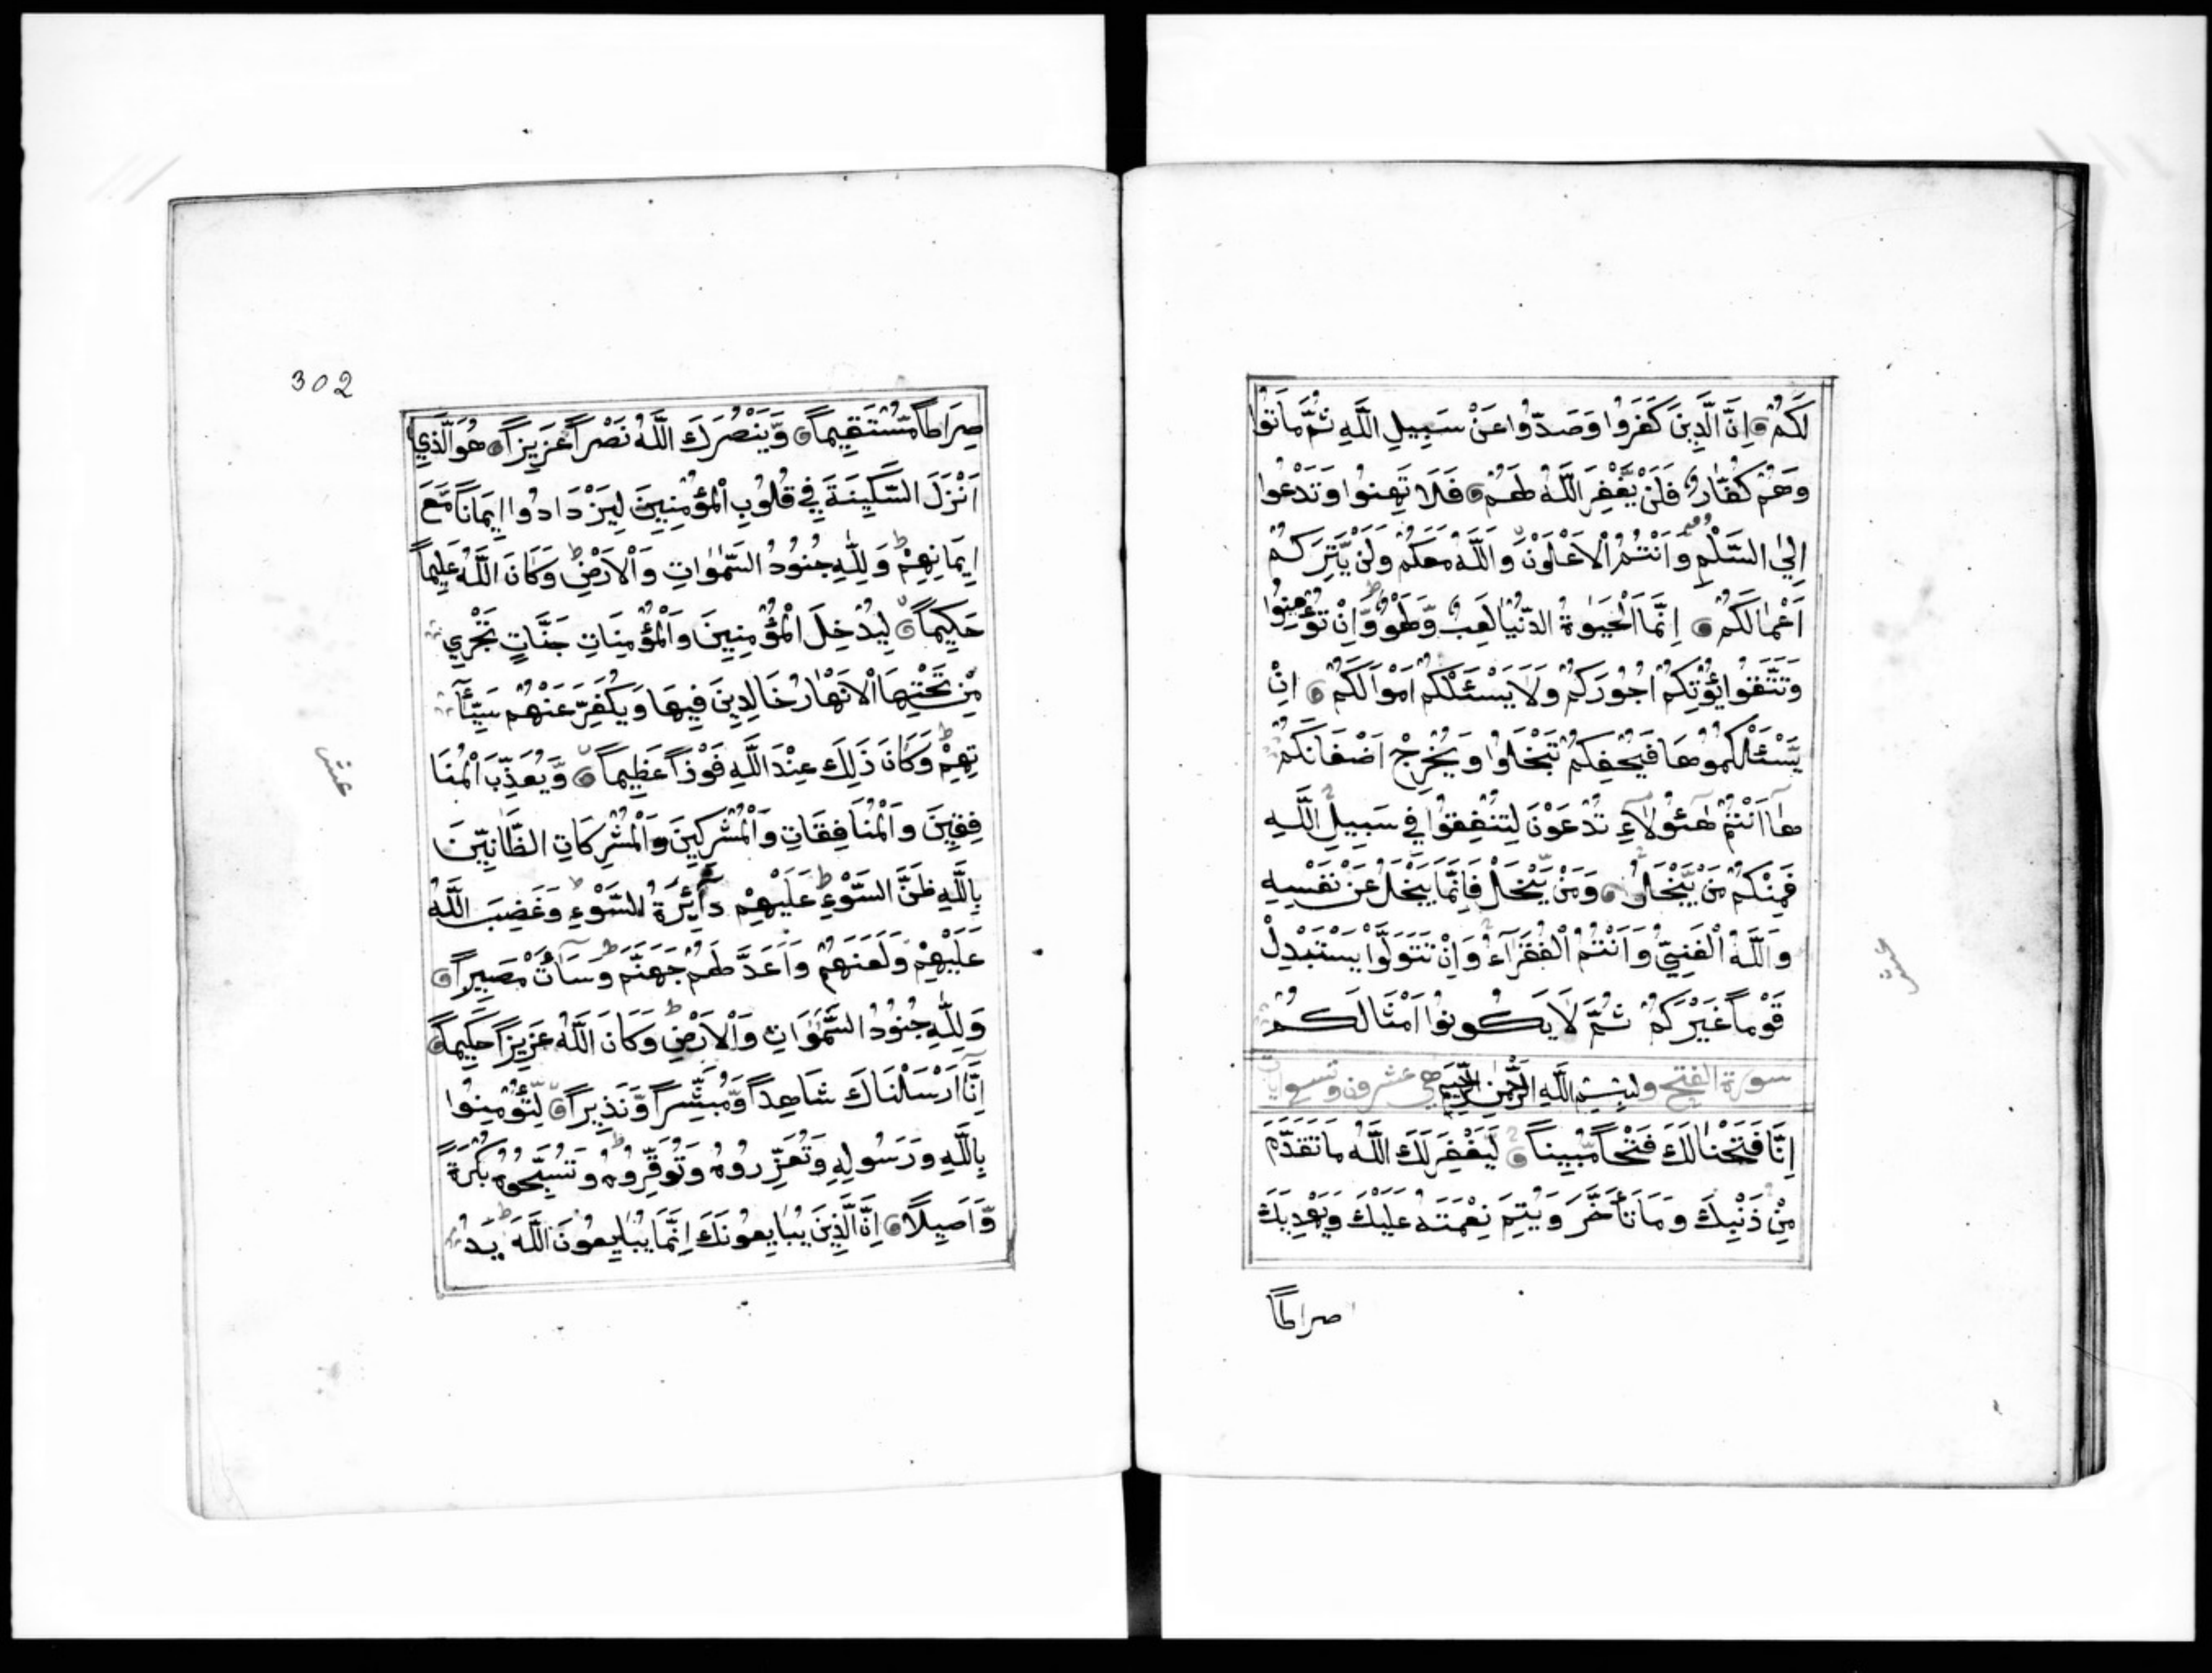 لَكُمْ اِنَّ الَّذِينَ كَفَرُوا وَصَدُّوا عَنْ سَبِيلِ اللَّهِ ثُمَّ مَاتُوا
وَهُمْ كُفَّارٌ فَلَنْ يَّغْفِرَ اللَّهُ لَهُمْ فَلَا تَهِنُوا وَتَدْعُوا
اِلَى السَّلْمِ وَاَنْتُمُ الْاَعْلَوْنَ وَاللَّهُ مَعَكُمْ وَلَنْ يَّتِرَكُمْ
اَعْمَالَكُمْ اِنَّمَا الْحَيٰوةُ الدُّنْيَا لَعِبٌ وَّلَهْوٌ وَّاِنْ تُؤْمِنُوا
وَتَتَّقُوا يُؤْتِكُمْ اُجُورَكُمْ وَلَا يَسْئَلْكُمْ اَمْوَالَكُمْ اِنْ
يَّسْئَلْكُمُوهَا فَيُحْفِكُمْ تَبْخَلُوا وَيُخْرِجْ اَضْغَانَكُمْ
هَا اَنْتُمْ هٰٓئُولَآءِ تُدْعَوْنَ لِتُنْفِقُوا فِي سَبِيلِ اللَّهِ
فَمِنْكُمْ مَّنْ يَّبْخَلُ وَمَنْ يَّبْخَلْ فَاِنَّمَا يَبْخَلُ عَنْ نَفْسِهِ
وَاللَّهُ الْغَنِيُّ وَاَنْتُمُ الْفُقَرَآءُ وَاِنْ تَتَوَلَّوْا يَسْتَبْدِلْ
قَوْماً غَيْرَكُمْ ثُمَّ لَا يَكُونُوا اَمْثَالَكُمْ
سورة الفتح بِسْمِ اللَّهِ الرَّحْمٰنِ الرَّحِيمِ هي عشرون وتسع
اِنَّا فَتَحْنَا لَكَ فَتْحاً مُّبِيناً لِّيَغْفِرَ لَكَ اللَّهُ مَا تَقَدَّمَ
مِنْ ذَنْبِكَ وَمَا تَأَخَّرَ وَيُتِمَّ نِعْمَتَهُ عَلَيْكَ وَيَهْدِيَكَ
صراطاً
عشر
302
صِرَاطاً مُّسْتَقِيماً وَّيَنْصُرَكَ اللَّهُ نَصْراً عَزِيزاً هُوَ الَّذِي
اَنْزَلَ السَّكِينَةَ فِي قُلُوبِ الْمُؤْمِنِينَ لِيَزْدَادُوا اِيمَاناً مَّعَ
اِيمَانِهِمْ وَلِلّٰهِ جُنُودُ السَّمٰوَاتِ وَالْاَرْضِ وَكَانَ اللَّهُ عَلِيماً
حَكِيماً لِيُدْخِلَ الْمُؤْمِنِينَ وَالْمُؤْمِنَاتِ جَنَّاتٍ تَجْرِي
مِنْ تَحْتِهَا الْاَنْهَارُ خَالِدِينَ فِيهَا وَيُكَفِّرَ عَنْهُمْ سَيِّـَٔا
تِهِمْ وَكَانَ ذَلِكَ عِنْدَ اللَّهِ فَوْزاً عَظِيماً وَّيُعَذِّبَ الْمُنَا
فِقِينَ وَالْمُنَافِقَاتِ وَالْمُشْرِكِينَ وَالْمُشْرِكَاتِ الظَّانِّينَ
بِاللَّهِ ظَنَّ السَّوْءِ عَلَيْهِمْ دَآئِرَةُ السَّوْءِ وَغَضِبَ اللَّهُ
عَلَيْهِمْ وَلَعَنَهُمْ وَاَعَدَّ لَهُمْ جَهَنَّمَ وَسَآءَتْ مَصِيراً
وَلِلّٰهِ جُنُودُ السَّمٰوَاتِ وَالْاَرْضِ وَكَانَ اللَّهُ عَزِيزاً حَكِيماً
اِنَّا اَرْسَلْنَاكَ شَاهِداً وَّمُبَشِّراً وَّنَذِيراً لِّتُؤْمِنُوا
بِاللَّهِ وَرَسُولِهِ وَتُعَزِّرُوهُ وَتُوَقِّرُوهُ وَتُسَبِّحُوهُ بُكْرَةً
وَّاَصِيلًا اِنَّ الَّذِينَ يُبَايِعُونَكَ اِنَّمَا يُبَايِعُونَ اللَّهَ يَدُ
عشر